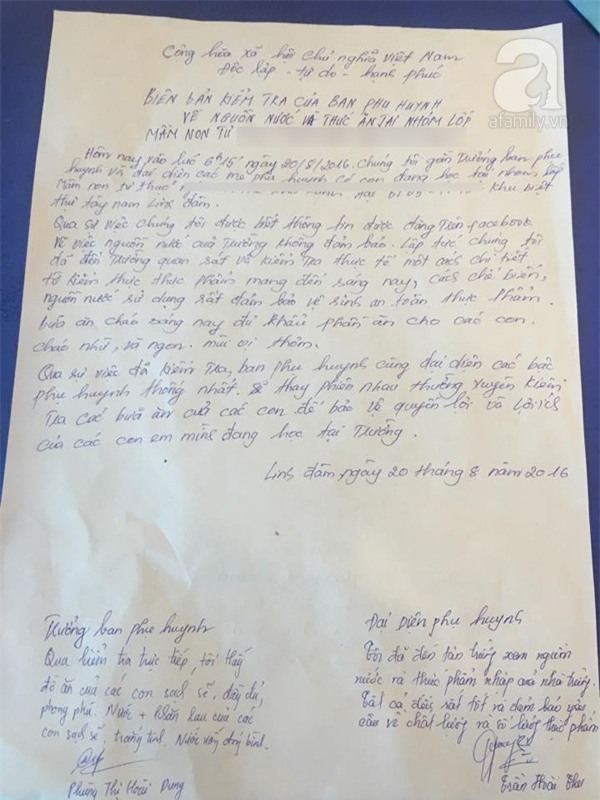 Cộng hòa xã hội chủ nghĩa Việt Nam
Độc lập - tự do - hạnh phúc
a
afamily.vn
BIÊN BẢN KIỂM TRA CỦA BAN PHỤ HUYNH
VỀ NGUỒN NƯỚC VÀ THỨC ĂN TẠI NHÓM LỚP
MẦM NON TƯ
Hôm nay vào lúc 6h15' ngày 20/8/2016. Chúng tôi gồm Trưởng ban phụ
huynh và đại diện các mẹ phụ huynh có con đang học tại nhóm lớp
Mầm non tư thục khu biệt
thự tây nam Linh đàm.
Qua sự việc chúng tôi được biết thông tin được đăng trên facebook
về việc nguồn nước của Trường không đảm bảo. Lập tức chúng tôi
đã đến Trường quan sát và kiểm tra thực tế một cách chi tiết
từ kiểm thực thực phẩm mang đến sáng nay, cách chế biến,
nguồn nước sử dụng rất đảm bảo vệ sinh an toàn thực phẩm.
bữa ăn cháo sáng nay đủ khẩu phần ăn cho các con.
cháo nhừ, và ngon. mùi vị thơm.
Qua sự việc đã kiểm tra, ban phụ huynh cùng đại diện các bậc
phụ huynh thống nhất. sẽ thay phiên nhau thường xuyên kiểm
Tra các bữa ăn của các con để bảo vệ quyền lợi và lợi ích
của các con em mình đang học tại Trường.
Linh đàm, ngày 20 tháng 8 năm 2016
Trưởng ban phụ huynh
Qua kiểm tra trực tiếp, tôi thấy
đồ ăn của các con sạch sẽ, đầy đủ,
phong phú. Nước + khăn lau của các
con sạch sẽ, Nước
Phùng Thị Hoài Dung
Đại Diện phụ huynh
Tôi đã đến tận trường xem nguồn
nước và thực phẩm nhập của nhà trường.
Tất cả đều rất tốt và đảm bảo yêu
cầu về chất lượng và số lượng thực phẩm
Trần Hoài Thu